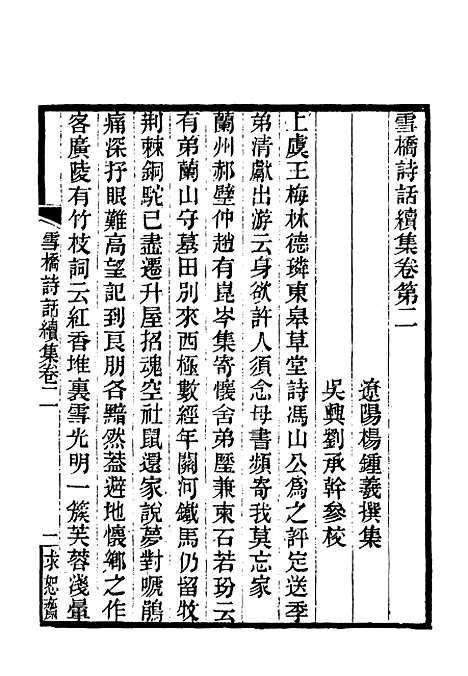 雪橋詩話續集卷第二
遼陽楊鍾羲撰集
吳興劉承幹參校
上虞王梅林德璘東皋草堂詩馮山公為之評定送季
弟清獻出游云身欲許人須念母書頻寄我莫忘家
蘭州郝璧仲趙有崑岑集寄懷舍弟壓兼柬石若玢云
有弟蘭山守墓田別來西極數經年關河鐵馬仍留牧
荆棘銅駝已盡遷升屋招魂空社鼠還家說夢對嗁鵑
痛深抒眼難高望記到良朋各黯然蓋避地懷鄉之作
客廣陵有竹枝詞云紅香堆裏雪光明一簇芙蓉淺暈
雪橋詩話續集卷二
一求恕齋